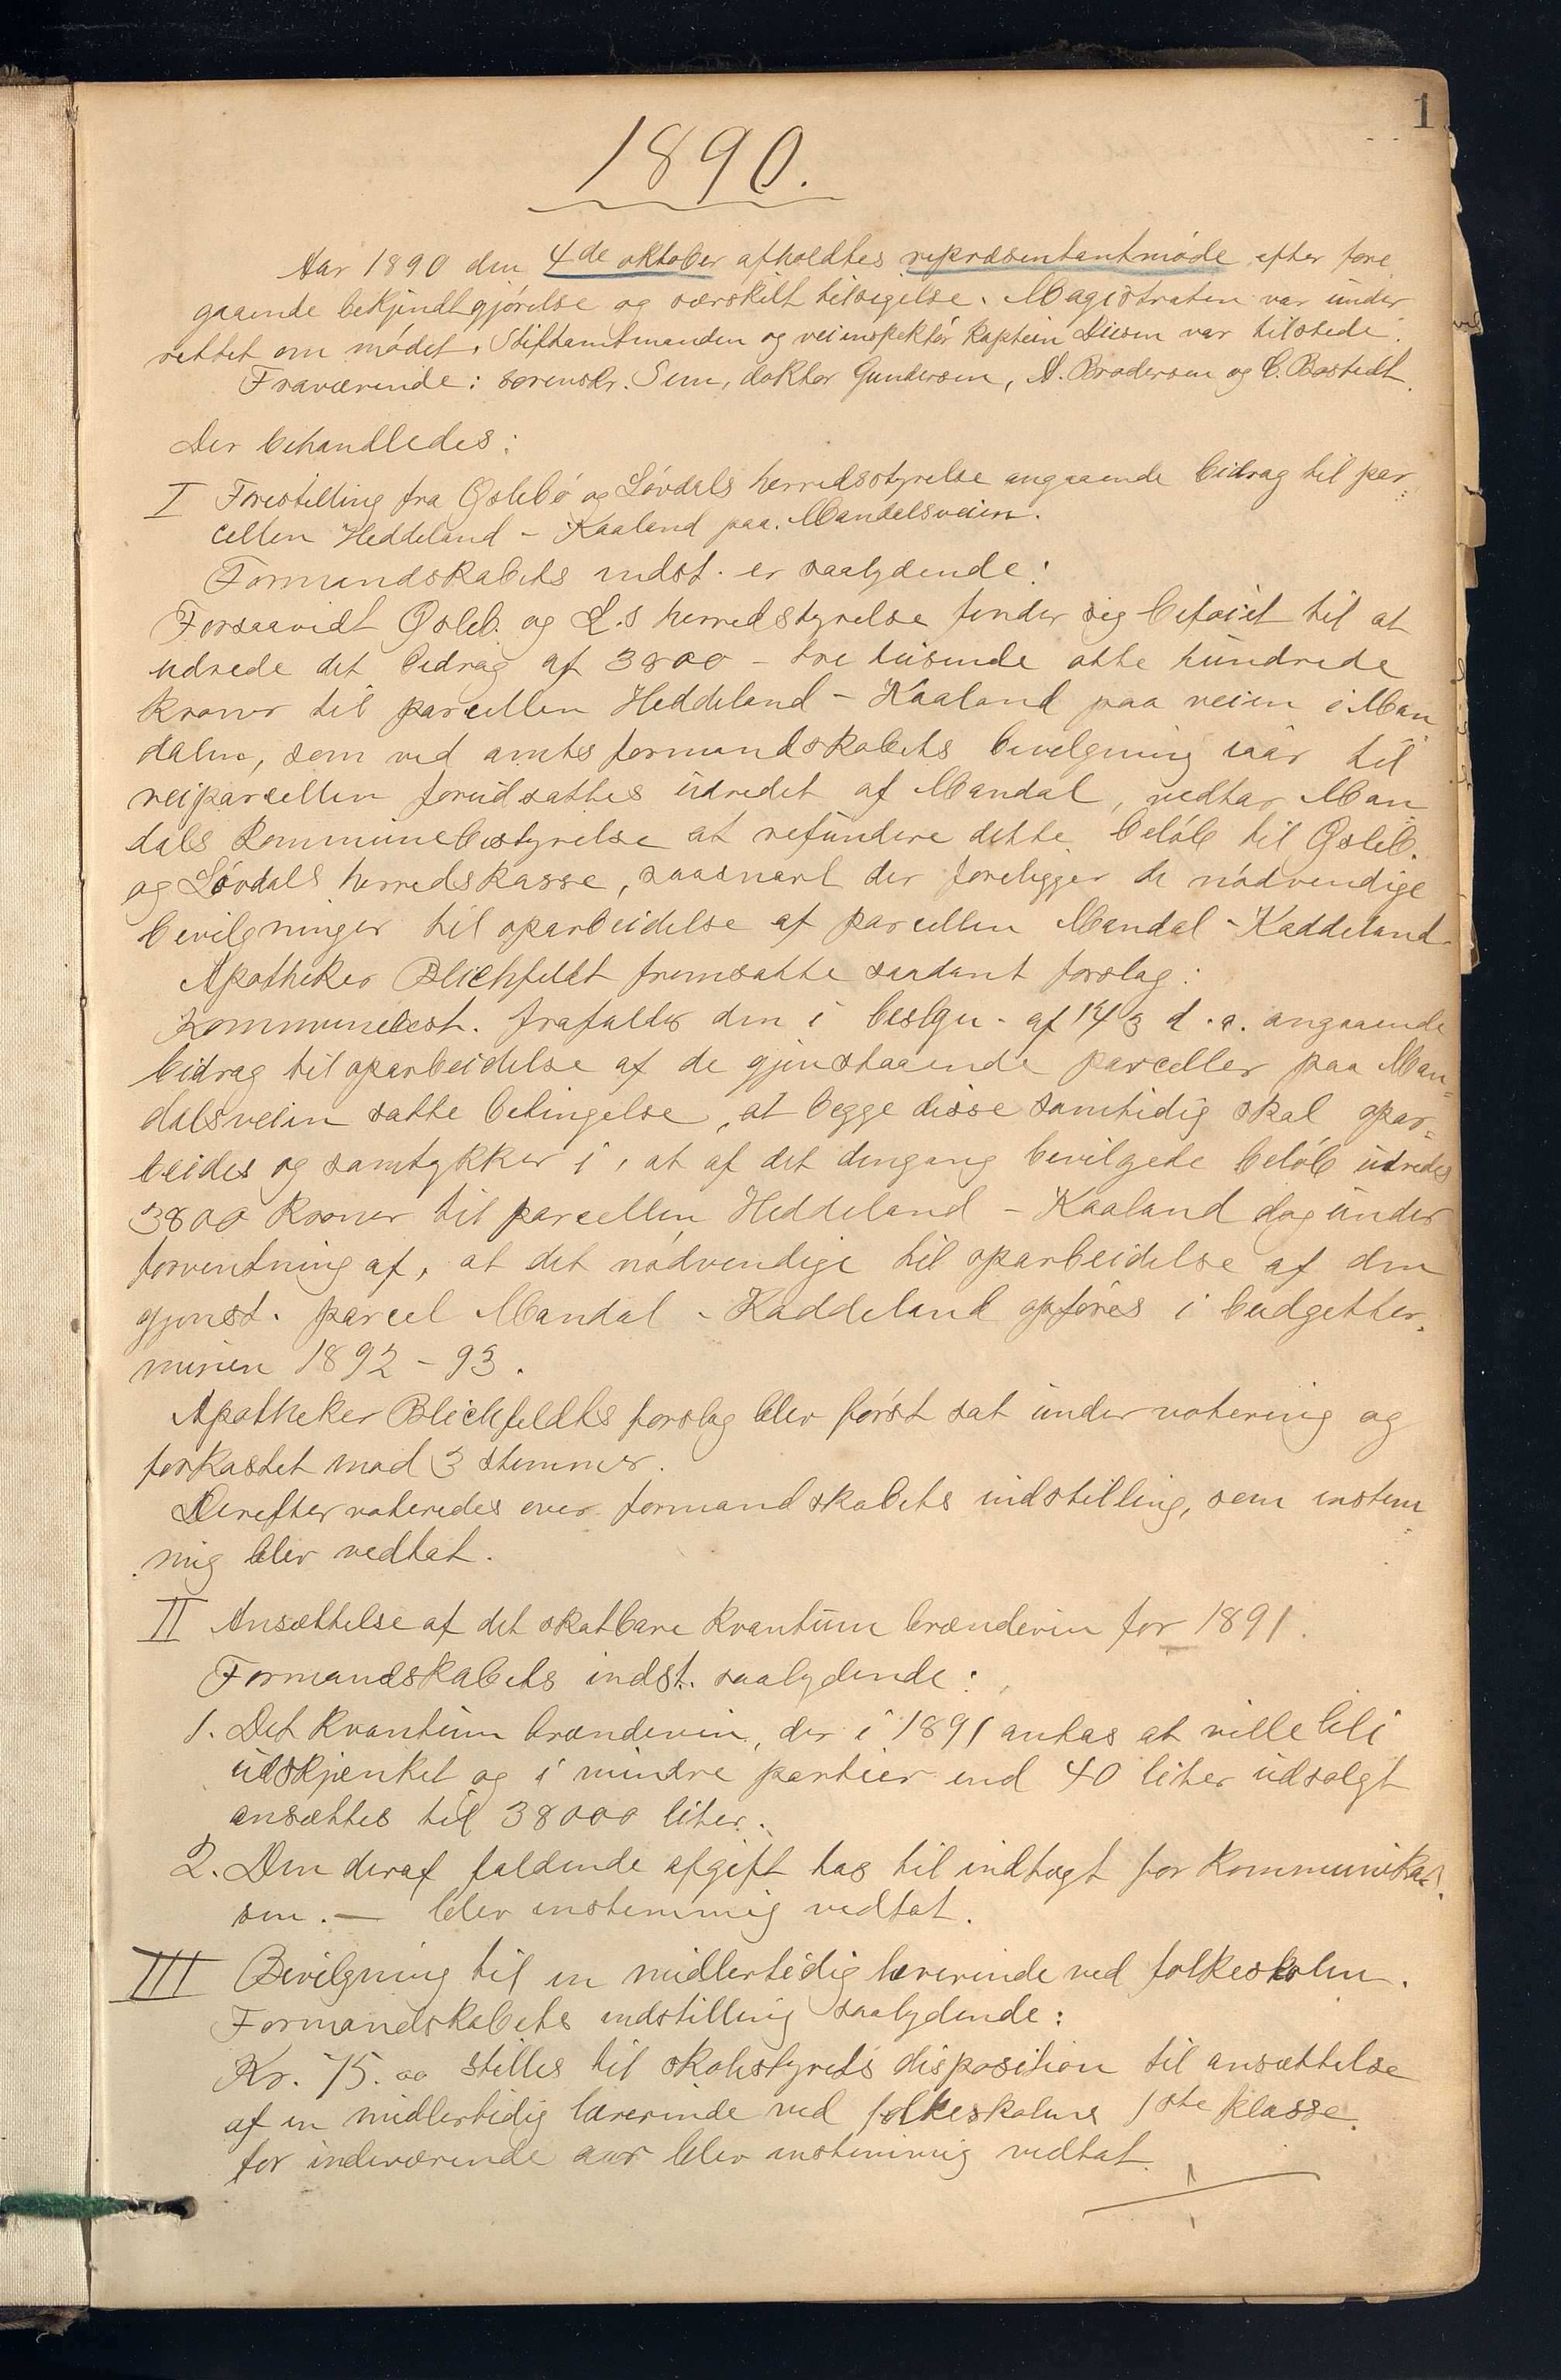 1
1890.
Aar 1890 den 4de oktober afholdtes repræsentantmøde efter fore
gaaende bekjendtgjørelse og særskilt tilsigelse. Magistraten var under
rettet om mødet. Stiftamtmanden og veiinspektør kaptein Diesen var tilstede.
Fraværende: sorenskr. Sem, doktor Gundersen, A. Brodersen og C. Bostedt.
Der behandledes:
I Forestilling fra Øslebø og Løvdals herredsstyrelse angaaende bidrag til par
cellen Heddeland - Kaaland paa Mandalsveien.
Formandskabets indst. er saalydende:
Forsaavidt Øsleb. og L.s herredstyrelse finder sig beføiet til at
udrede det bidrag af 3800 - tre tusinde otte hundrede
kroner til parcellen Heddeland - Kaaland paa veien i Man
dalen, som ved amtsformandskabets bevilgning iaar til
veiparcellen forudsattes udredet af Mandal, vedtar Man
dals kommunebestyrelse at refundere dette beløb til Øsleb.
og Løvdals herredskasse, saasnart der foreligger de nødvendige
bevilgninger til oparbeidelse af parcellen Mandal - Kaddeland
Apotheker Blichfeldt fremsatte saadant forslag:
Kommunebest. frafalder den i beslgn. af 14/3 d.a. angaaende
bidrag til oparbeidelse af de gjenstaaende parceller paa Man
dalsveien satte betingelse, at begge disse samtidig skal opar-
beides og samtykker i, at af det dengang bevilgede beløb udredes
3800 kroner til parcellen Heddeland - Kaaland dog under
forventning af, at det nødvendige til oparbeidelse af den
gjenst. parcel Mandal - Kaddeland opføres i budgetter
minen 1892 - 93.
Apotheker Blichfeldts forslag blev først sat under votering og
forkastet mod 3 stemmer.
Derefter voteredes over formandskabets indstilling, som enstem
mig blev vedtat.
II Ansættelse af det skatbare kvantum brændevin for 1891.
Formandskabets indst. saalydende:
1. Det kvantum brændevin, der i 1891 antas at ville bli
udskjænket og i mindre partier end 40 liter udsolgt
ansættes til 38000 liter.
2. Den deraf faldende afgift tas til indtægt for kommunekas
sen. — blev enstemmig vedtat.
III Bevilgning til en midlertidig lærerinde ved folkeskolen.
Formandskabets indstilling saalydende:
Kr. 75.00 stilles til skolestyrets disposition til ansættelse
af en midlertidig lærerinde ved folkeskolens 1ste klasse
for indeværende aar blev enstemmig vedtat.